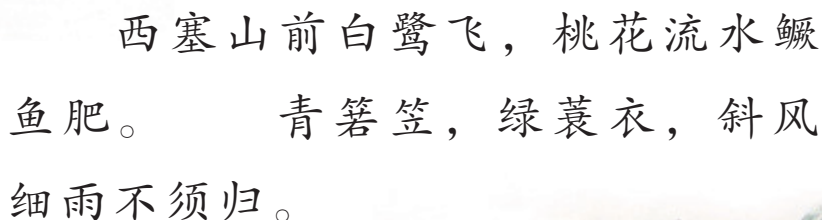 西塞山前白鹭飞，桃花流水鳜
鱼肥。　　青箬笠，绿蓑衣，斜风
细雨不须归。